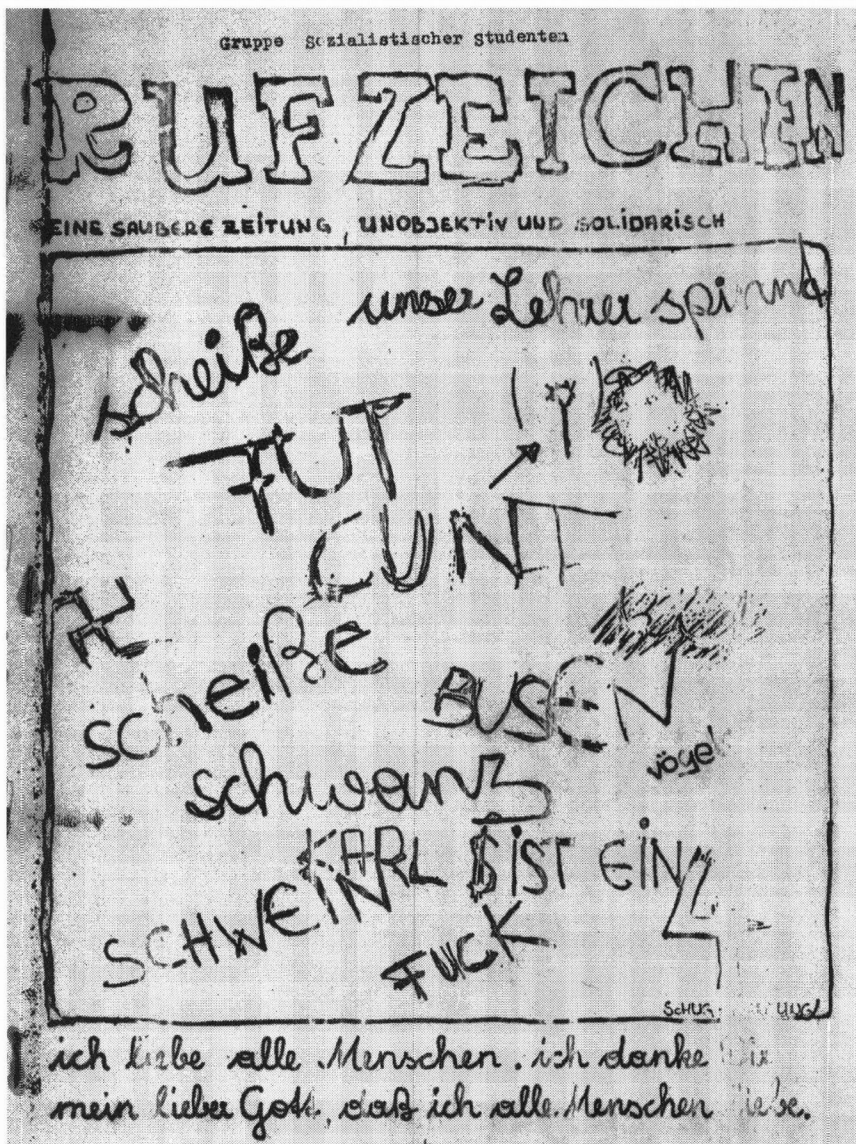 Gruppe Sozialistischer Studenten
RUFZEICHEN
EINE SAUBERE ZEITUNG, UNOBJEKTIV UND SOLIDARISCH
unser Lehrer spinnt
scheiße
FUT
CUNT
scheiße
BUSEN
vögel
schwanz
KARL IST EIN
SCHWEIN
FUCK
ich liebe alle Menschen. ich danke
mein lieber Gott, daß ich alle Menschen liebe.